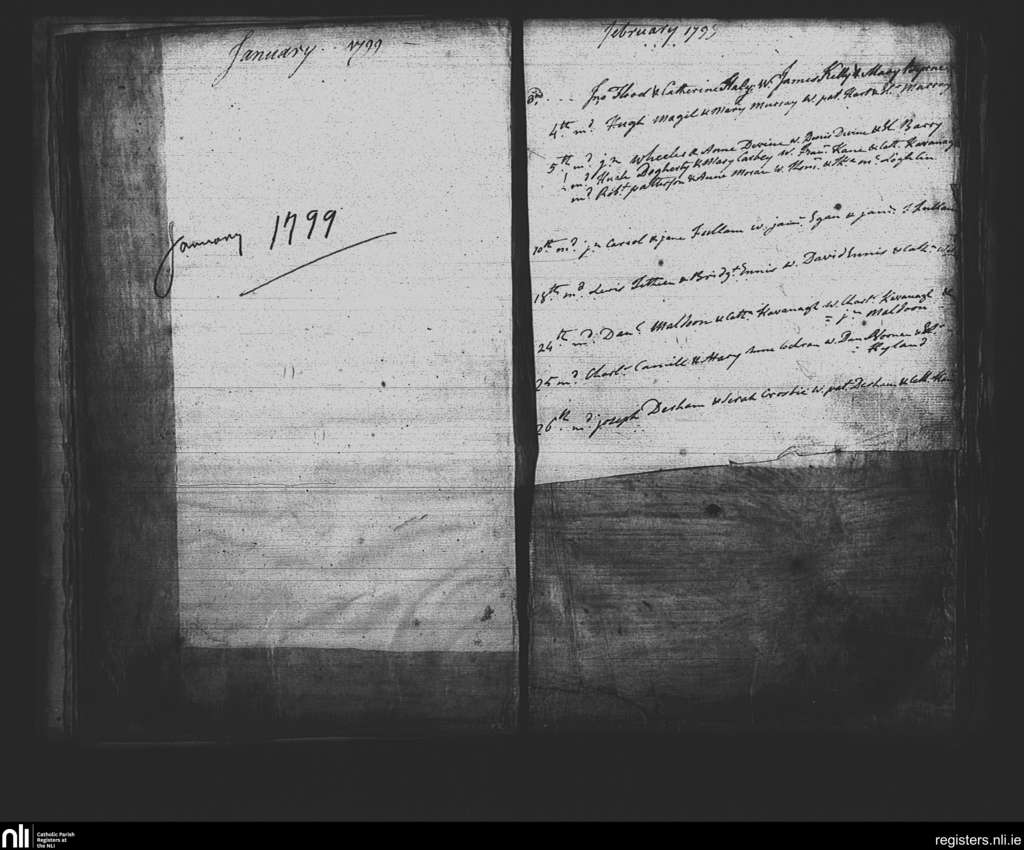 January 1799
January 1799
February 1799
Jno Flood & Catherine Haly w. James Kelly & Mary Byrne
4th md Hugh Magil & Mary Murray w. pat. Hart & Murray
5th md jn Wheeler & Anne Devine w. Denis Devine & El. Barry
md Hugh Dogherty & Mary Caskey w. Fran. Kane & Cath. Kavanagh
md Robt patterson & Anne Moran w. Thos. & mc Loghlin
10th md jn Carrol & jane Fullam w. jam. Egan & jam. Fullam
18th md Lewis & Bridgt Ennis w. David Ennis & Cath.
24th md Danl Maldoon & Cathn Kavanagh w. Chars. Kavanagh &
= jn Maldoon
25 md Chars. & Mary w. Dan &
Hyland
26th md joseph Desham & Sarah Crosbie w. pat Desham & Cath.
nli
Catholic Parish
Registers at
the NLI
registers.nli.ie